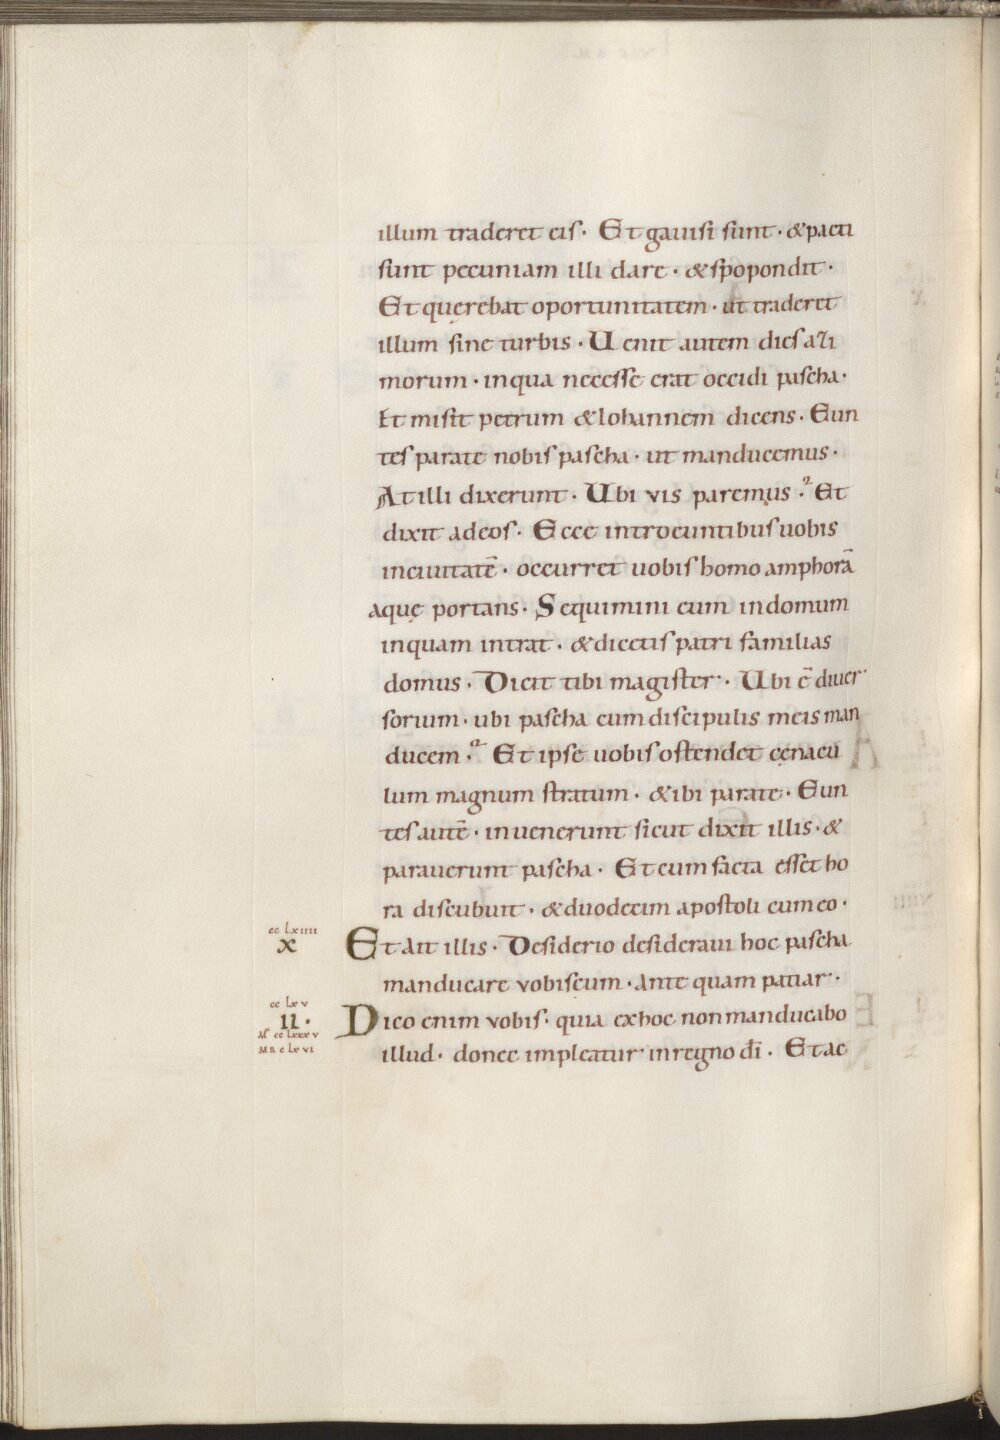 illum traderet eis· Et gauisi sunt· & pacti
sunt pecuniam illi dare· & spopondit·
Et querebat oportunitatem· ut traderet
illum sine turbis· Uenit autem dies azi
morum· in qua necesse erat occidi pascha·
Et misit petrum & Iohannem dicens· Eun
tes parate nobis pascha· ut manducemus·
At illi dixerunt· Ubi vis paremus? Et
dixit ad eos· Ecce introeuntibus uobis
in ciuitatē· occurret uobis homo amphorā
aquę portans· Sequimini eum in domum
in quam intrat· & dicetis patri familias
domus· Dicit tibi magister· Ubi ē diuer
sorium· ubi pascha cum discipulis meis man
ducem? Et ipse uobis ostendet cęnacu
lum magnum stratum· & ibi parate· Eun
tes autē· inuenerunt sicut dixit illis· &
parauerunt pascha· Et cum facta esset ho
ra discubuit· & duodecim apostoli cum eo·
cc lxiiii
x
Et ait illis· Desiderio desideraui hoc pascha
manducare vobiscum· ante quam patiar·
cc lxv
II·
Mt cc lxxxv
MR c lxvi
Dico enim vobis· quia ex hoc non manducabo
illud· donec impleatur in regno dī· Et ac